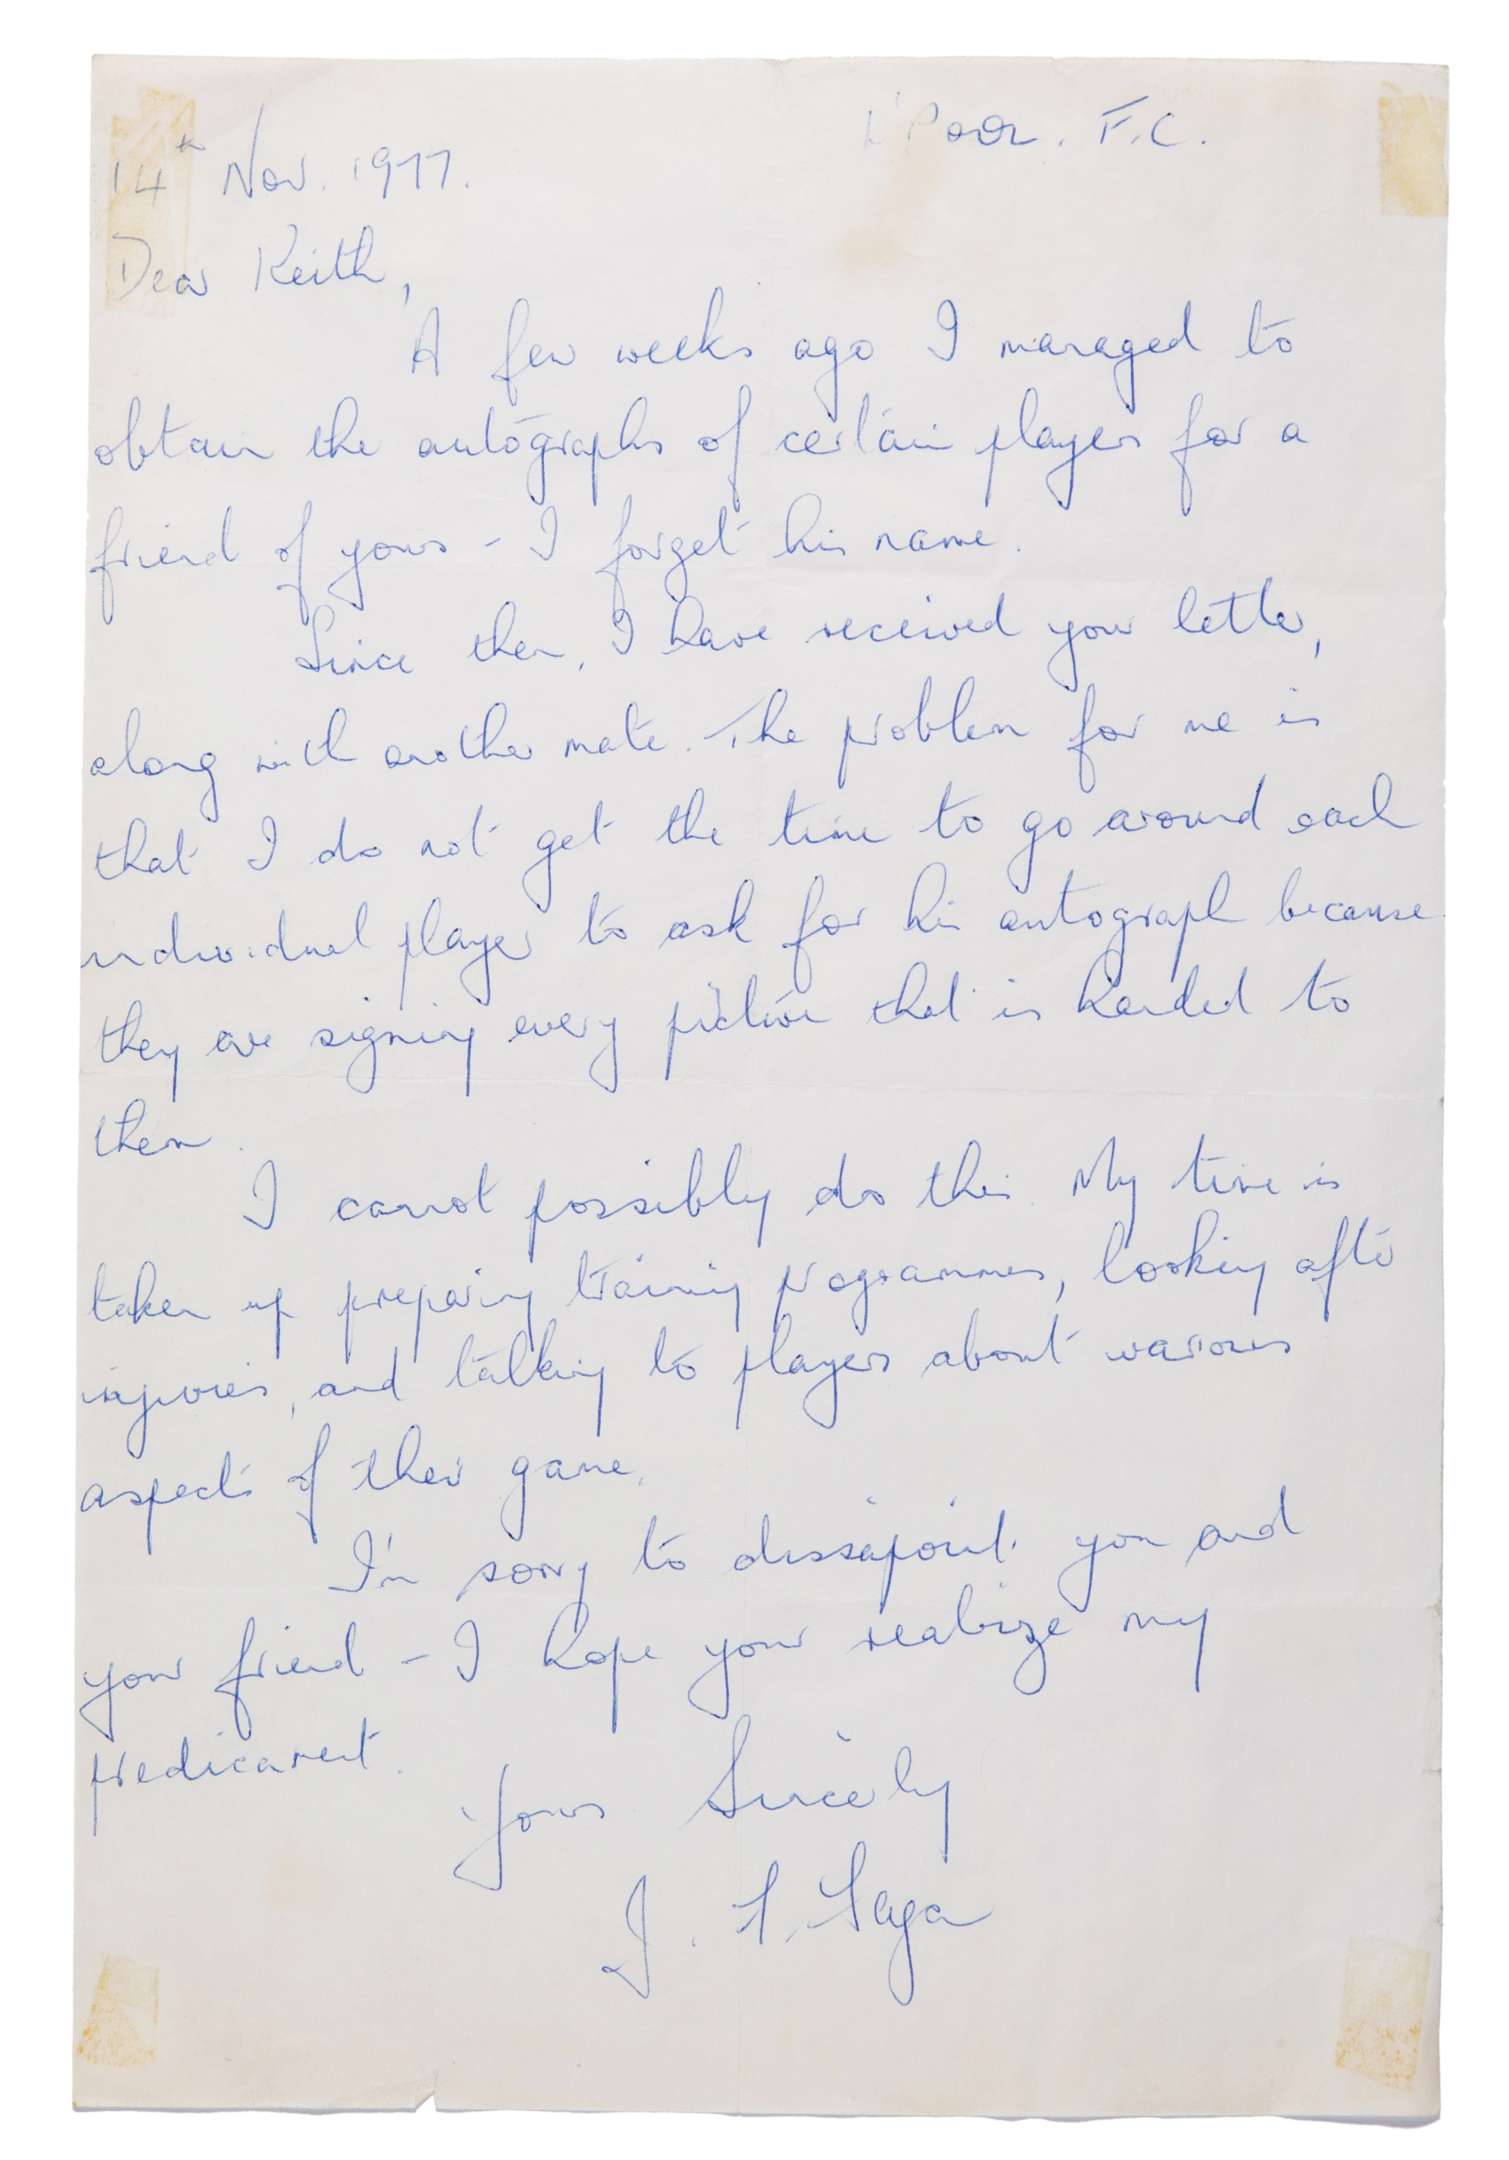 L'Pool. F.C.
14th Nov. 1977.
Dear Keith,
A few weeks ago I managed to
obtain the autographs of certain players for a
friend of yours - I forget his name.
Since then, I have received your letter,
along with another mate. The problem for me is
that I do not get the time to go around each
individual player to ask for his autograph because
they are signing every picture that is handed to
them.
I cannot possibly do this. My time is
taken up preparing training programmes, looking after
injuries, and talking to players about various
aspects of their game.
I'm sorry to dissapoint you and
your friend - I hope your realize my
predicament.
Yours Sincerely
J.